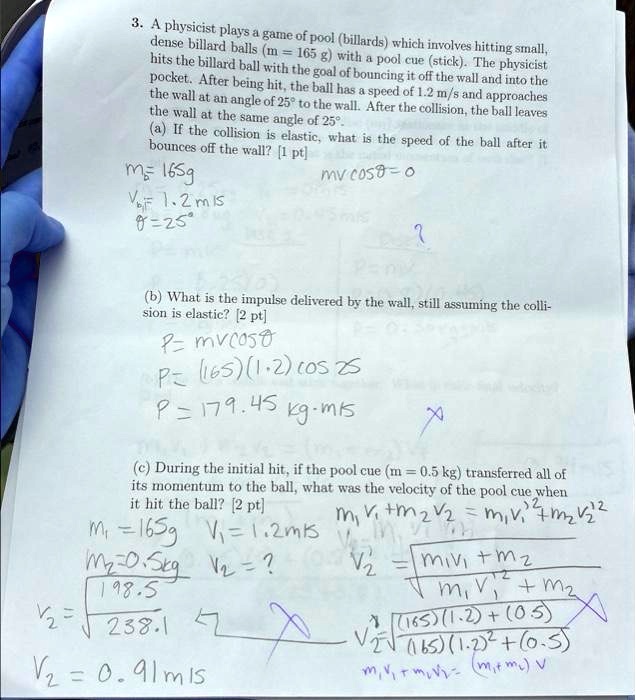 3. A physicist plays a game of pool (billards) which involves hitting small,
dense billard balls (m = 165 g) with a pool cue (stick). The physicist
hits the billard ball with the goal of bouncing it off the wall and into the
pocket. After being hit, the ball has a speed of 1.2 m/s and approaches
the wall at an angle of 25° to the wall. After the collision, the ball leaves
the wall at the same angle of 25°.
(a) If the collision is elastic, what is the speed of the ball after it
bounces off the wall? [1 pt]
m_b = 165g mv cosθ = 0
V_bi = 1.2 m/s
θ = 25°
?
(b) What is the impulse delivered by the wall, still assuming the colli-
sion is elastic? [2 pt]
P = mvcosθ
P = (165)(1.2) cos 25
P = 179.45 kg·m/s
(c) During the initial hit, if the pool cue (m = 0.5 kg) transferred all of
its momentum to the ball, what was the velocity of the pool cue when
it hit the ball? [2 pt]
m₁V₁ + m₂V₂ = m₁V₁'² + m₂V₂'²
m₁ = 165g V₁ = 1.2m/s
m₂ = 0.5kg V₂ = ? V₂' = √(m₁V₁ + m₂ / m₁V₁'² + m₂)
V₂ = √(198.5 / 238.1) V₂ = √((165)(1.2) + (0.5) / (165)(1.2)² + (0.5))
V₂ = 0.91 m/s m₁V₁ + m₂V₂ = (m₁+m₂) V